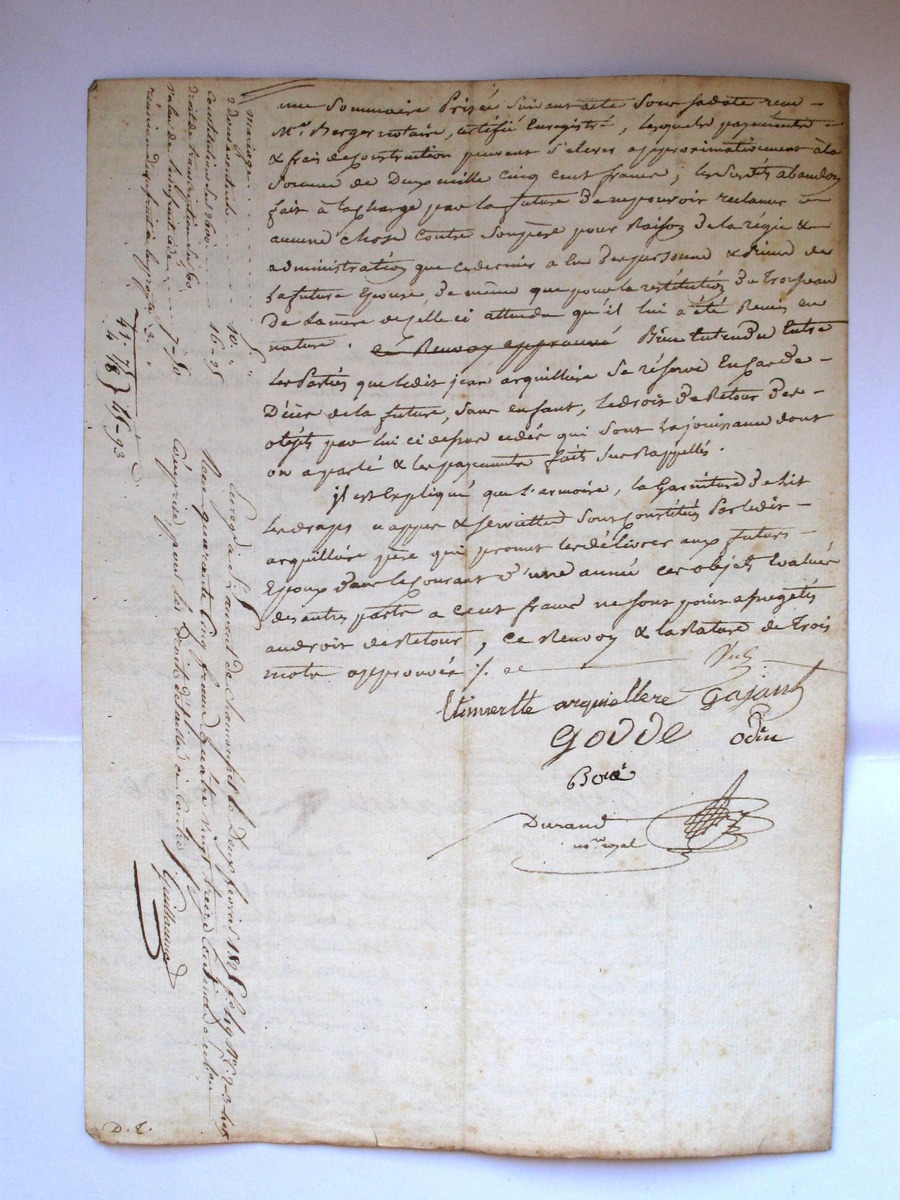 une sommaire Prisée suivant acte sous sa date reçu
Me. Berger notaire, certifié Enregistré, lesquels payements
& frais de construction peuvent s'elever approximativement à la
Somme de Deux mille cinq cent francs; les Susdits abandons
fait à la charge par la future de ne pouvoir reclamer
aucune chose contre Son père pour Raison de la régie &
administration que ce dernier a eu de sa personne & biens de
la future Epouse, De même que pour la restitution Du Trousseau
De la mère de celle ci attendu qu'il lui a été Remis en
nature. ce Renvoy approuvé Bien Entendu Entre
les Parties que ledit jean arquillière Se réserve En Cas de
Décès de la future, Sans enfant, le droit De Retour Des
objets par lui ci dessus cédés qui sont la jouissance dont
on a parlé & les payements faits Sus Rappellés.
il est Expliqué que l'armoire, la Garniture De Lit
les draps nappes & serviettes Sont Constitués Par ledit
arquillière père qui promet les délivrer aux futurs
Epoux Dans le Courant D'une année ces objets Evalués
des autres parts a Cent francs ne sont point affectés
au droit de Retour, Ce Renvoy & la Rature de Trois
mots approuvés ./. ae
arquillere Gajant
Godde odin
Boué
Durand
nore. royal
mariage
Constitution sur 2600 16-25
droit de transcription sur 7-80
valeur de l'usufruit cédé
réunion d'usufruit à la propriété
Enregistré à St. Savout de Chamousset le Deux fevrier 1825 fo. 149 Vo. C. 2
Reçu quarante Cinq francs quatre vingt treize Centimes
Compris pour les Droits détaillés ci Contre
Guillermard
D. T.